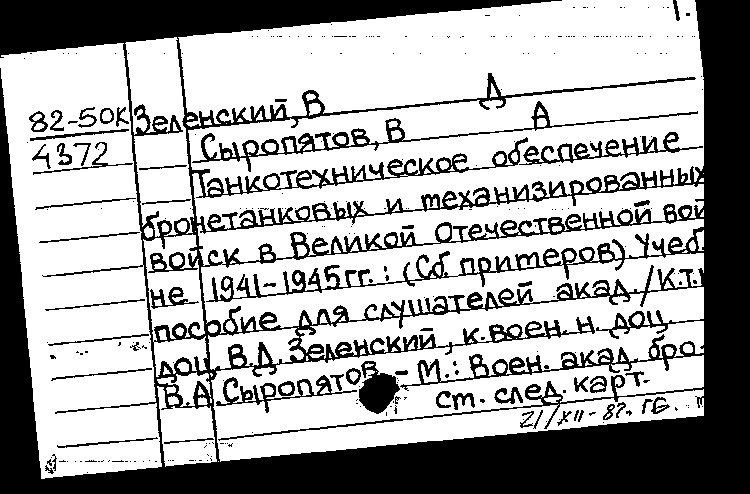 1.
82-50К Зеленский, В Д
4372 Сыропятов, В А
Танкотехническое обеспечение
бронетанковых и механизированных
войск в Великой Отечественной вой
не 1941-1945 гг.: (Сб. примеров). Учеб.
пособие для слушателей акад. / К.т.
доц. В.Д. Зеленский, к. воен. н. доц.
В.А. Сыропятов. - М.: Воен. акад. бро-
ст. след. карт.
21/XII-82. ГБ.